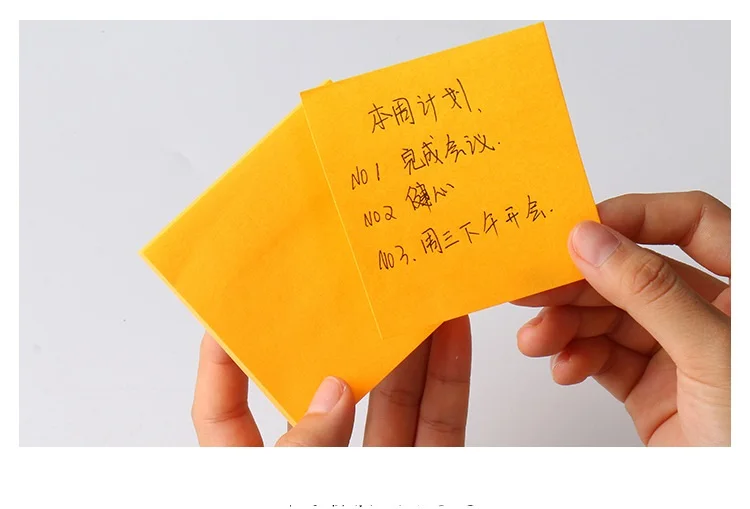 本周计划、
NO1 完成会议.
NO2 健心
NO3. 周三下午开会.